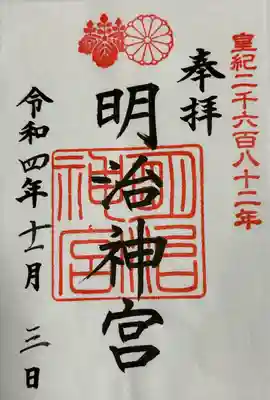 皇紀二千六百八十二年
奉拝
明治神宮
明治神宮
令和四年十一月三日